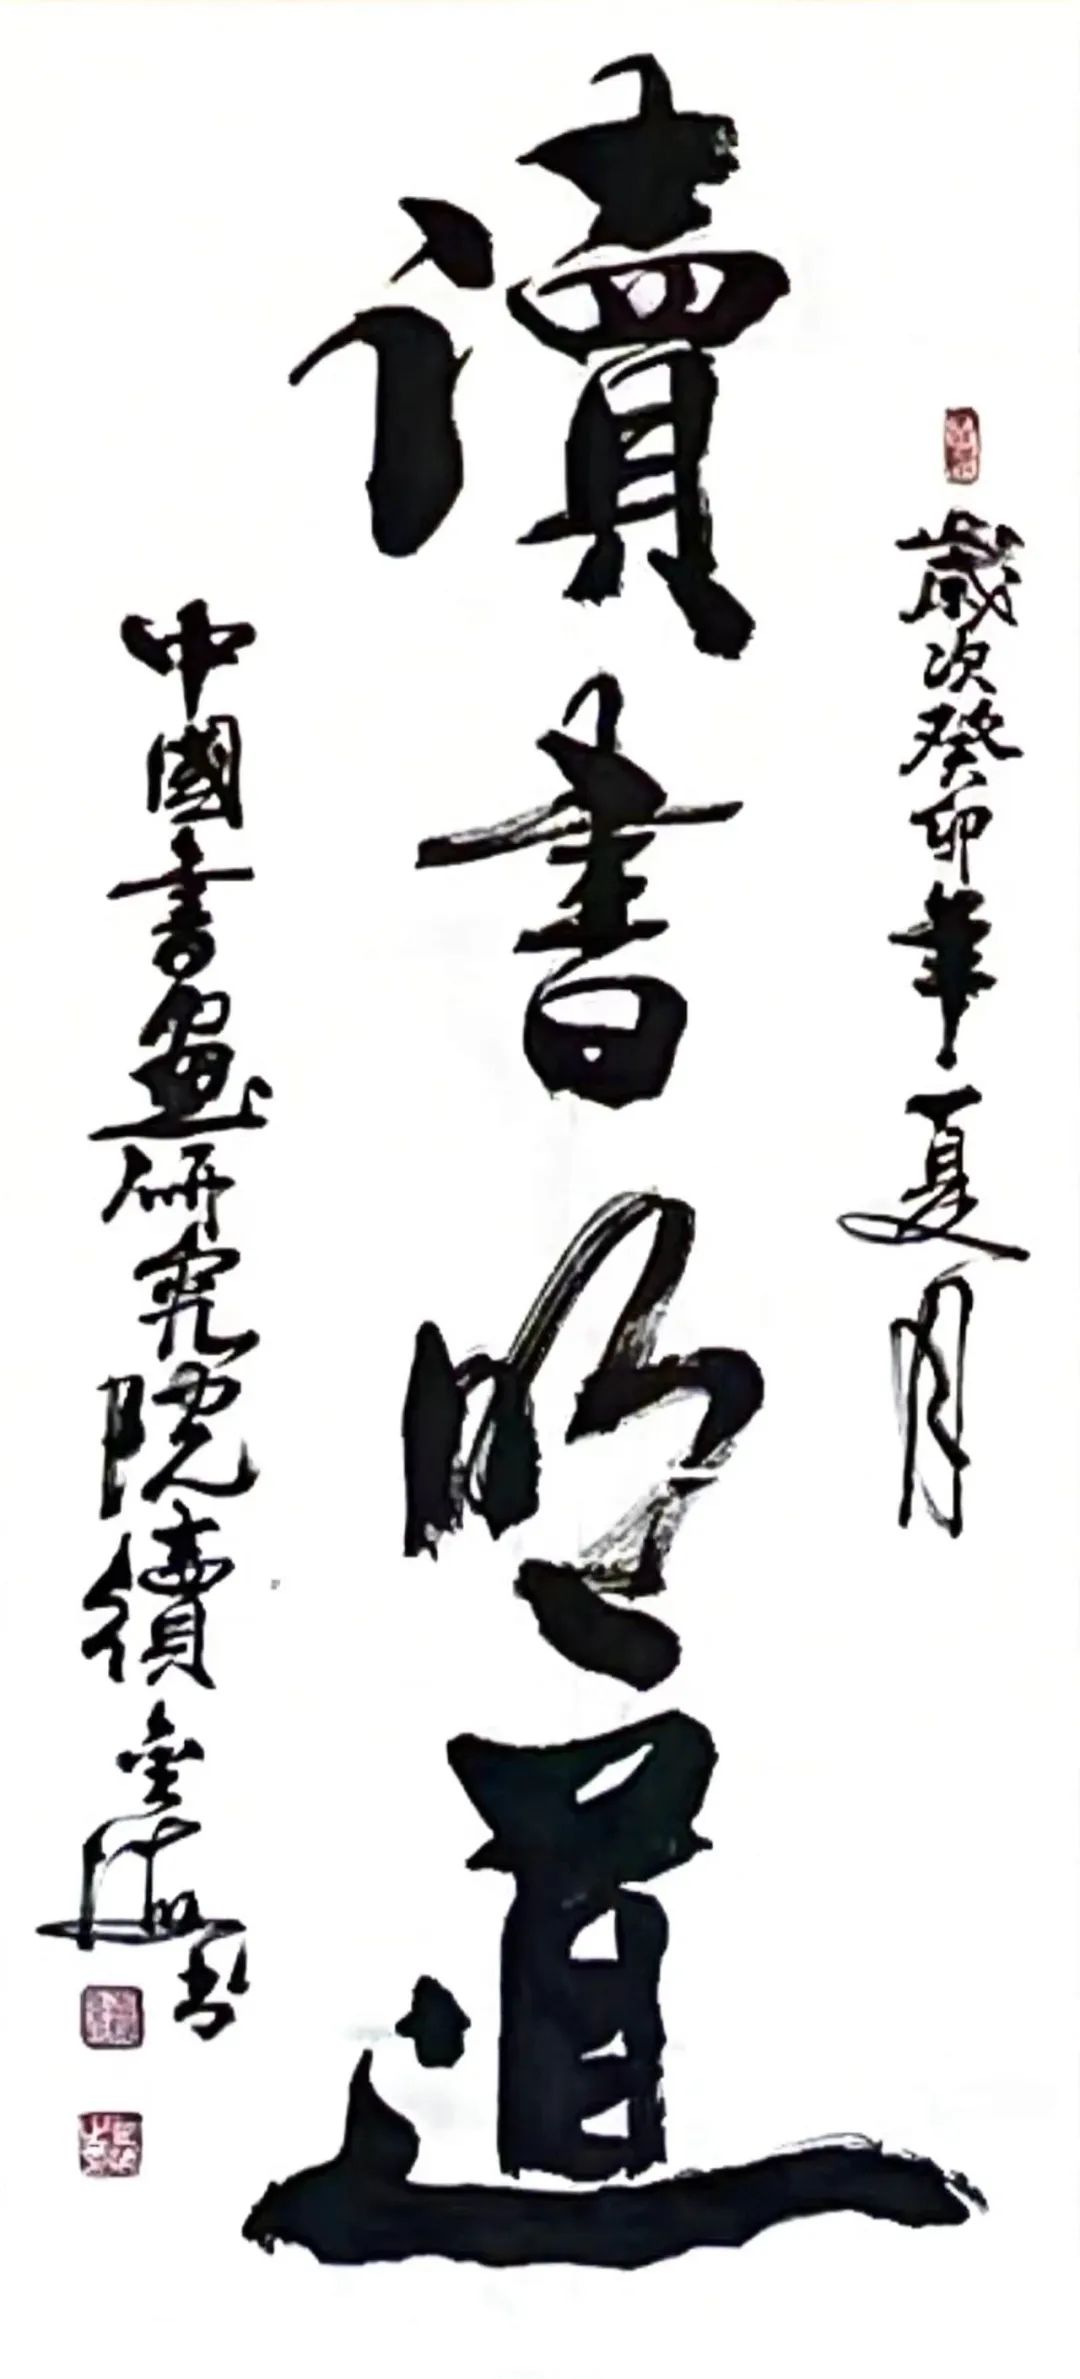 歲次癸卯年夏月
讀書明道
中國書畫研究院續
書